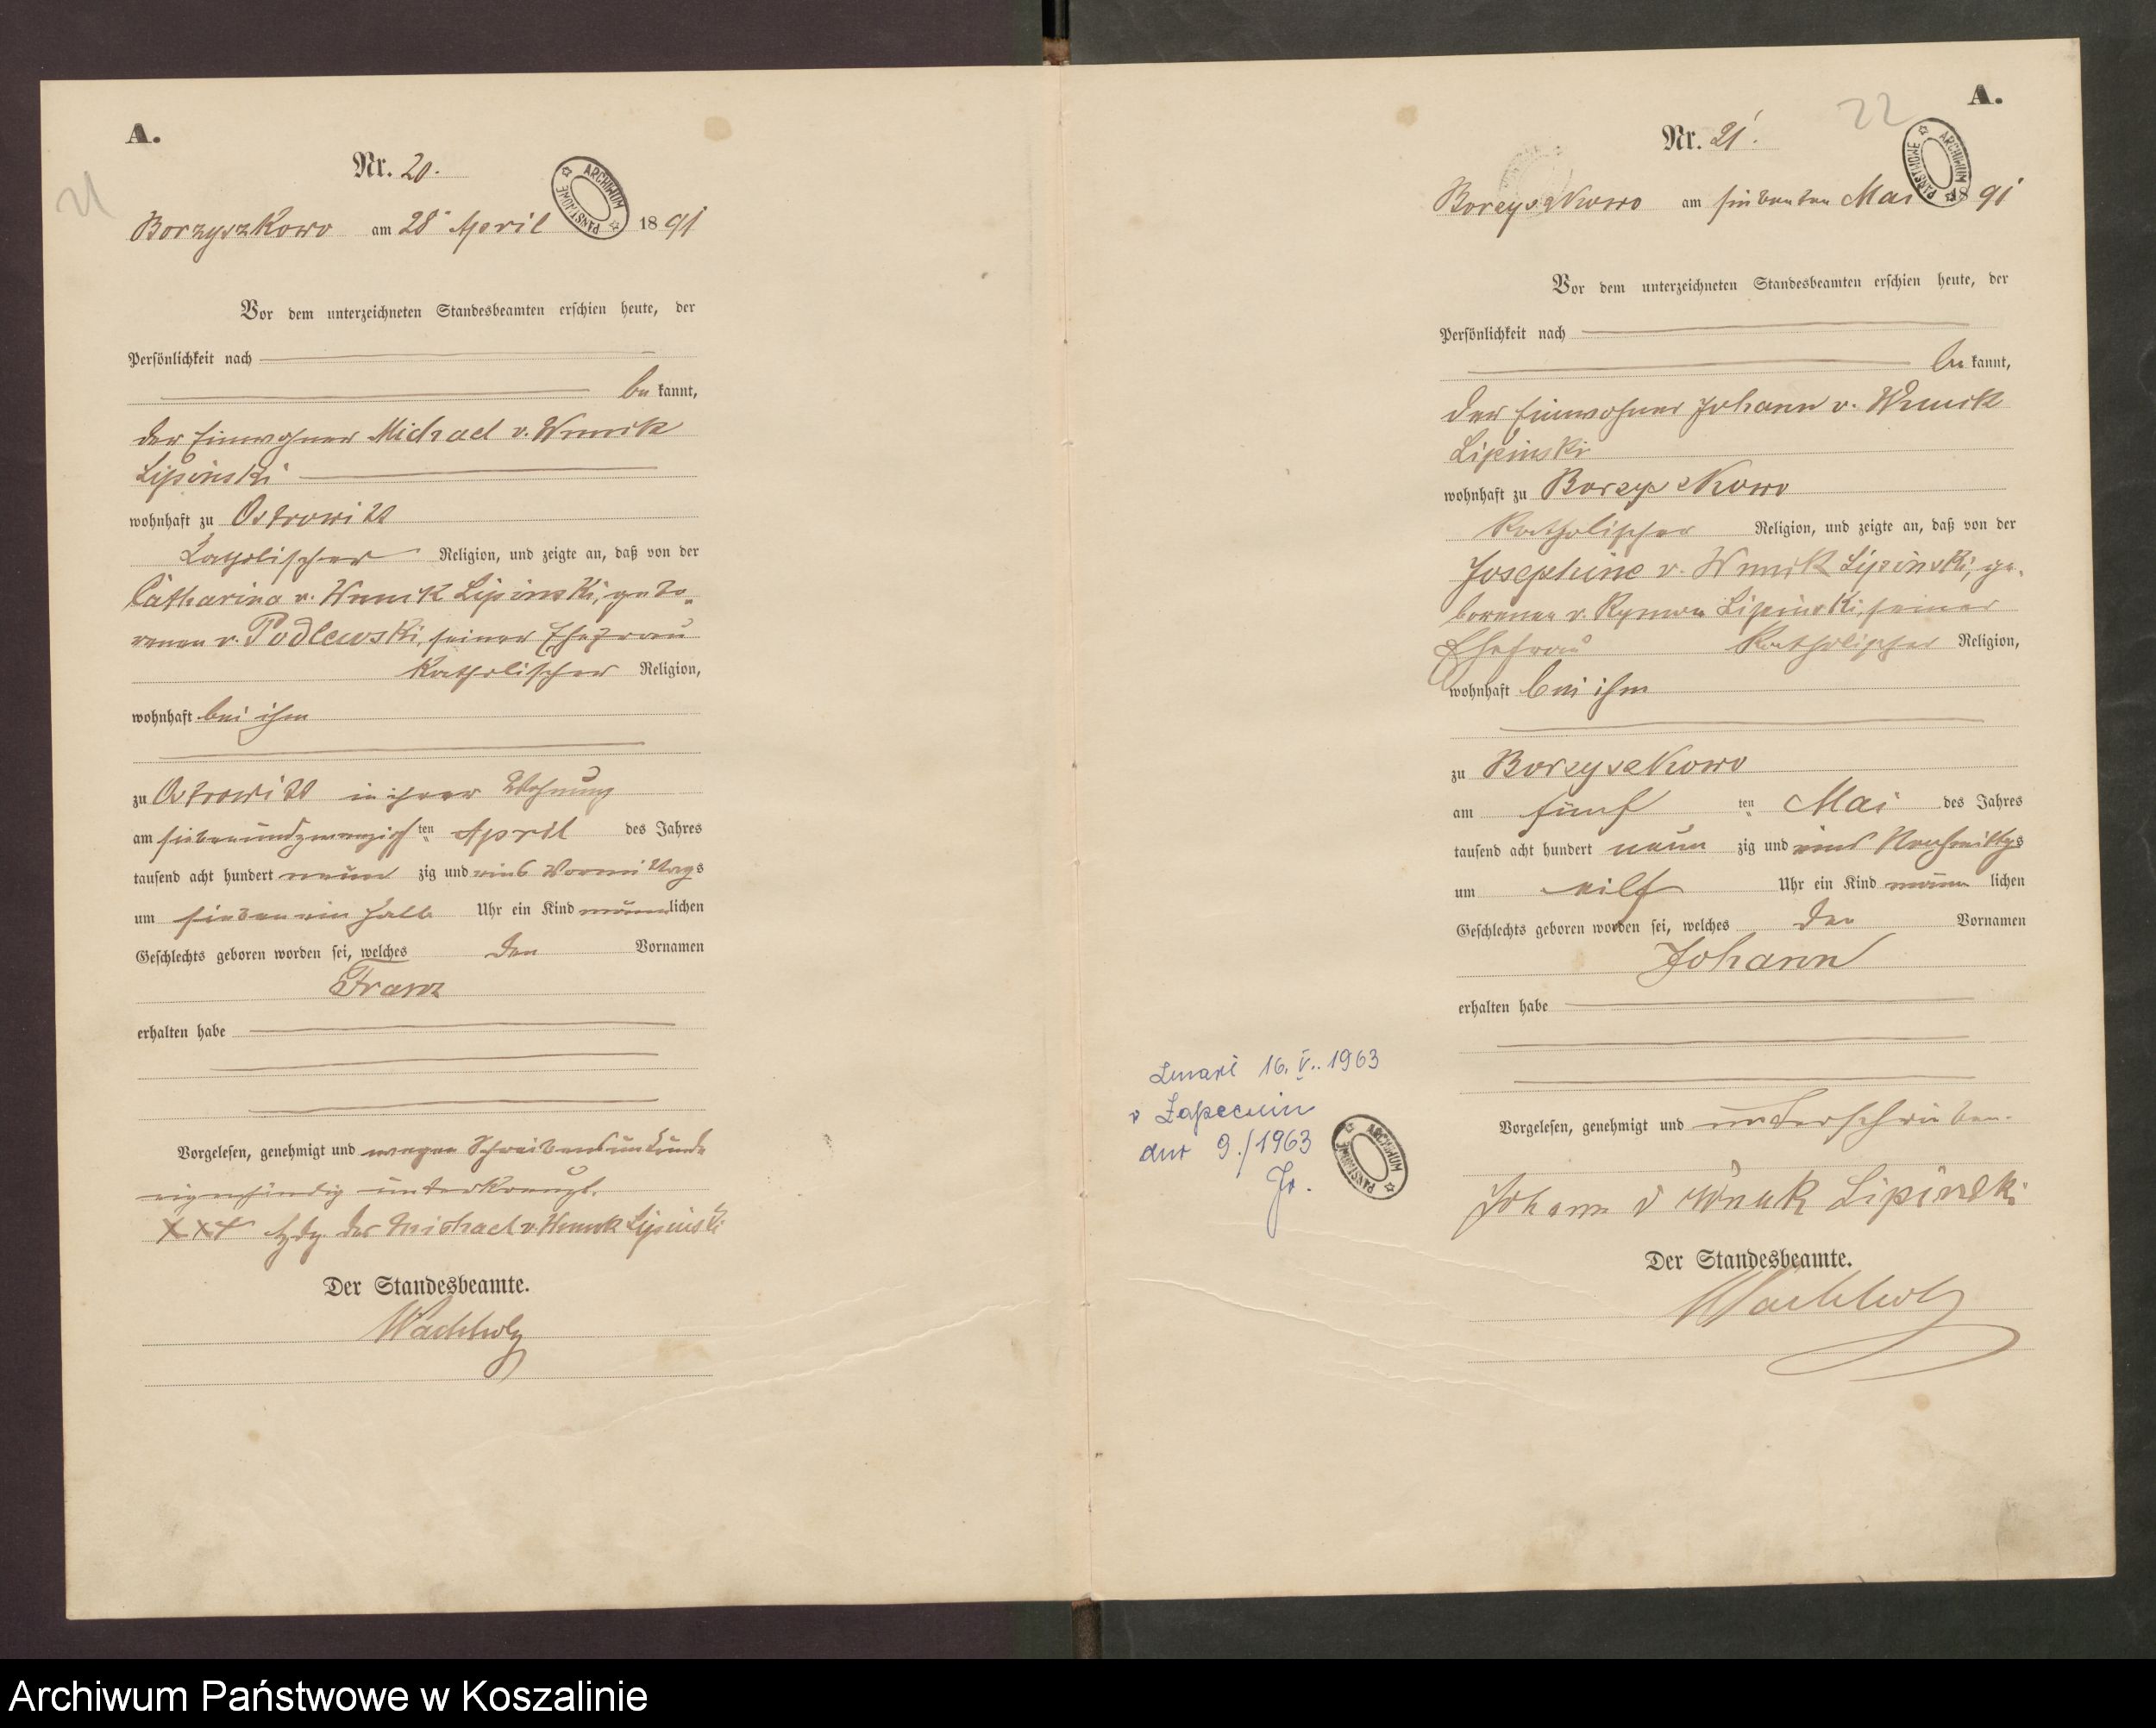 A.
21
Nr. 20.
ARCHIWUM PAŃSTWOWE
Borzyszkowo am 28ᵗ April 1891
Vor dem unterzeichneten Standesbeamten erschien heute, der
Persönlichkeit nach
be kannt,
der Einwohner Michael v. Wnuck
Lipinski
wohnhaft zu Ostrowitt
katholischer Religion, und zeigte an, daß von der
Catharina v. Wnuck Lipinski, gebo-
renen v. Podlewski, seiner Ehefrau
katholischer Religion,
wohnhaft bei ihm
zu Ostrowitt in ihrer Wohnung
am siebenundzwanzigsten April des Jahres
tausend acht hundert neun zig und eins Vormittags
um sieben ein halb Uhr ein Kind männlichen
Geschlechts geboren worden sei, welches den Vornamen
Franz
erhalten habe
Vorgelesen, genehmigt und wegen Schreibensunkunde
eigenhändig unterkreuzt.
XXX Hdz. des Michael v. Wnuck Lipinski
Der Standesbeamte.
Wachholz
A.
22
Nr. 21.
ARCHIWUM PAŃSTWOWE
Borzyszkowo am siebenten Mai 1891
Vor dem unterzeichneten Standesbeamten erschien heute, der
Persönlichkeit nach
be kannt,
der Einwohner Johann v. Wnuck
Lipinski
wohnhaft zu Borzyszkowo
katholischer Religion, und zeigte an, daß von der
Josephine v. Wnuck Lipinski, ge-
borenen v. Rymon Lipinski, seiner
Ehefrau katholischer Religion,
wohnhaft bei ihm
zu Borzyszkowo
am fünf ten Mai des Jahres
tausend acht hundert neun zig und eins Nachmittags
um eilf Uhr ein Kind männ lichen
Geschlechts geboren worden sei, welches den Vornamen
Johann
erhalten habe
Vorgelesen, genehmigt und unterschrieben.
Johann v Wnuk Lipinski
Der Standesbeamte.
Wachholz
Zmarł 16. V. 1963
w
akt 9/1963
ARCHIWUM PAŃSTWOWE
Archiwum Państwowe w Koszalinie